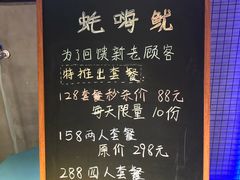 蚝嗨鱿
为了回馈新老顾客
特推出套餐
128套餐秒杀价 88元
每天限量 10份
158两人套餐
原价 298元
288四人套餐